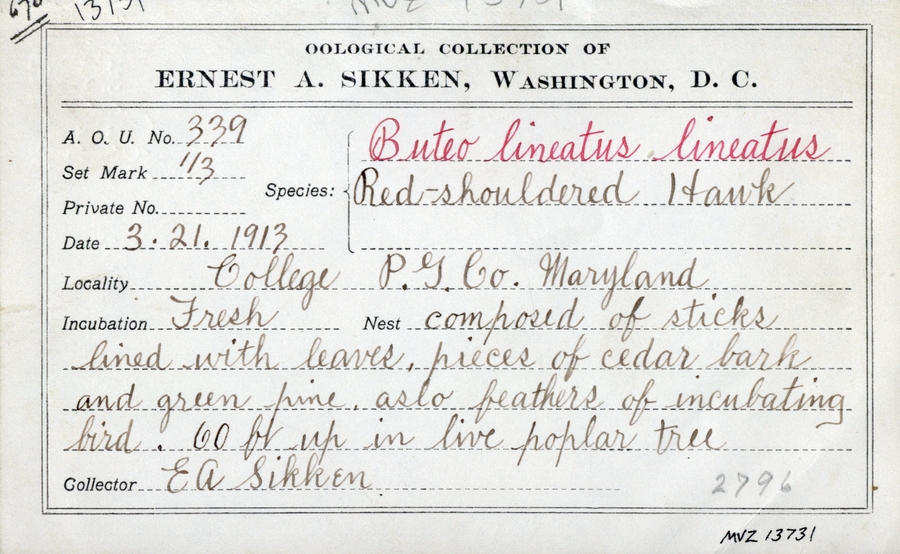 13731
MVZ 13731
OOLOGICAL COLLECTION OF
ERNEST A. SIKKEN, WASHINGTON, D. C.
A. O. U. No. 339
Set Mark 1/3
Private No.
Date 3. 21. 1913
Species: Buteo lineatus lineatus
Red-shouldered Hawk
Locality College P.G. Co. Maryland
Incubation Fresh Nest composed of sticks
lined with leaves, pieces of cedar bark
and green pine, aslo feathers of incubating
bird. 60 ft up in live poplar tree
Collector EA Sikken
2796
MVZ 13731